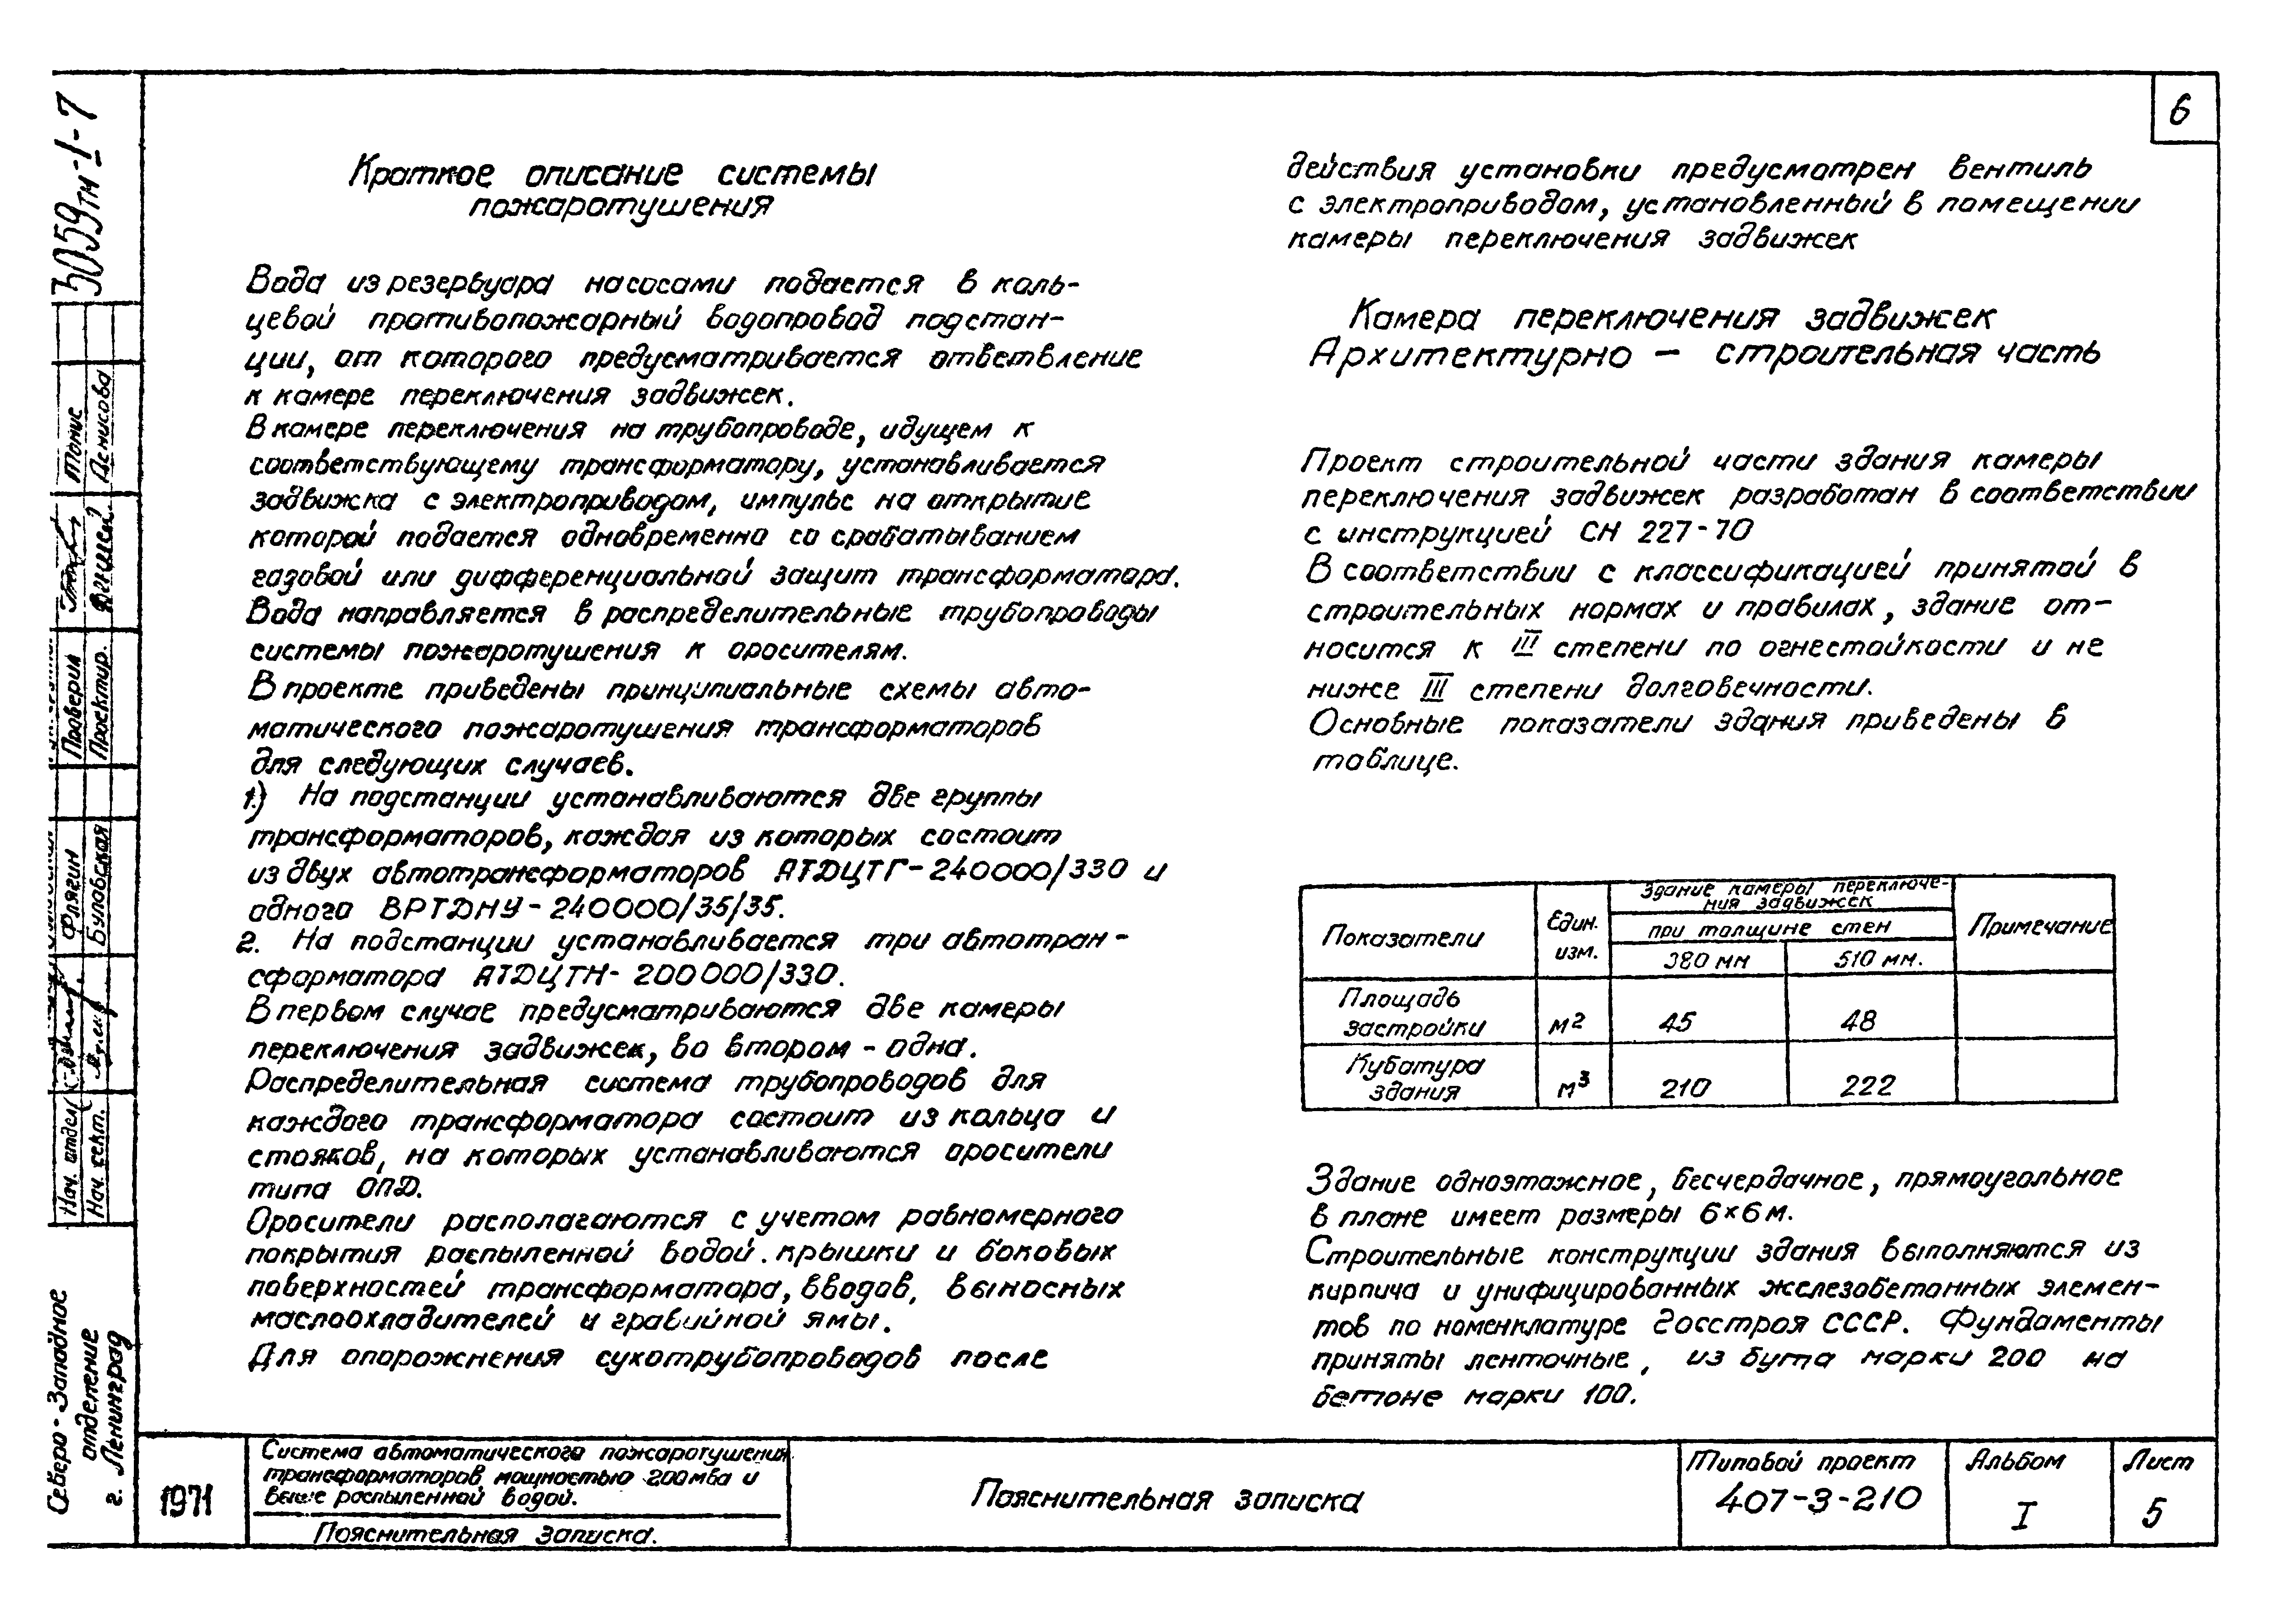 6
Краткое описание системы
пожаротушения
Вода из резервуара насосами подается в коль-
цевой противопожарный водопровод подстан-
ции, от которого предусматривается ответвление
к камере переключения задвижек.
В камере переключения на трубопроводе, идущем к
соответствующему трансформатору, устанавливается
задвижка с электроприводом, импульс на открытие
которой подается одновременно со срабатыванием
газовой или дифференциальной защит трансформатора.
Вода направляется в распределительные трубопроводы
системы пожаротушения к оросителям.
В проекте приведены принципиальные схемы авто-
матического пожаротушения трансформаторов
для следующих случаев.
1.) На подстанции устанавливаются две группы
трансформаторов, каждая из которых состоит
из двух автотрансформаторов АТДЦТГ-240000/330 и
одного ВРТДНУ-240000/35/35.
2. На подстанции устанавливается три автотран-
сформатора АТДЦТН-200000/330.
В первом случае предусматриваются две камеры
переключения задвижек, во втором - одна.
Распределительная система трубопроводов для
каждого трансформатора состоит из кольца и
стояков, на которых устанавливаются оросители
типа ОПД.
Оросители располагаются с учетом равномерного
покрытия распыленной водой. крышки и боковых
поверхностей трансформатора, вводов, выносных
маслоохладителей и гравийной ямы.
Для опорожнения сухотрубопроводов после
действия установки предусмотрен вентиль
с электроприводом, установленный в помещении
камеры переключения задвижек
Камера переключения задвижек
Архитектурно - строительная часть
Проект строительной части здания камеры
переключения задвижек разработан в соответствии
с инструкцией СН 227-70
В соответствии с классификацией принятой в
строительных нормах и правилах, здание от-
носится к III степени по огнестойкости и не
ниже III степени долговечности.
Основные показатели здания приведены в
таблице.
Показатели
Един.
изм.
Здание камеры переключе-
ния задвижек
при толщине стен
380 мм
510 мм.
Примечание
Площадь
застройки
м2
45
48
Кубатура
здания
м3
210
222
Здание одноэтажное, бесчердачное, прямоугольное
в плане имеет размеры 6×6м.
Строительные конструкции здания выполняются из
кирпича и унифицированных железобетонных элемен-
тов по номенклатуре Госстроя СССР. Фундаменты
приняты ленточные, из бута марки 200 на
бетоне марки 100.
3059тм-I-7
Тонис
Денисова
Проверил
Проектир.
Флягин
Буловская
Нач. отдел
Нач. сект.
Северо-Западное
отделение
г. Ленинград
1971
Система автоматического пожаротушения
трансформаторов мощностью 200мва и
выше распыленной водой.
Пояснительная записка.
Пояснительная записка
Типовой проект
407-3-210
Альбом
I
Лист
5